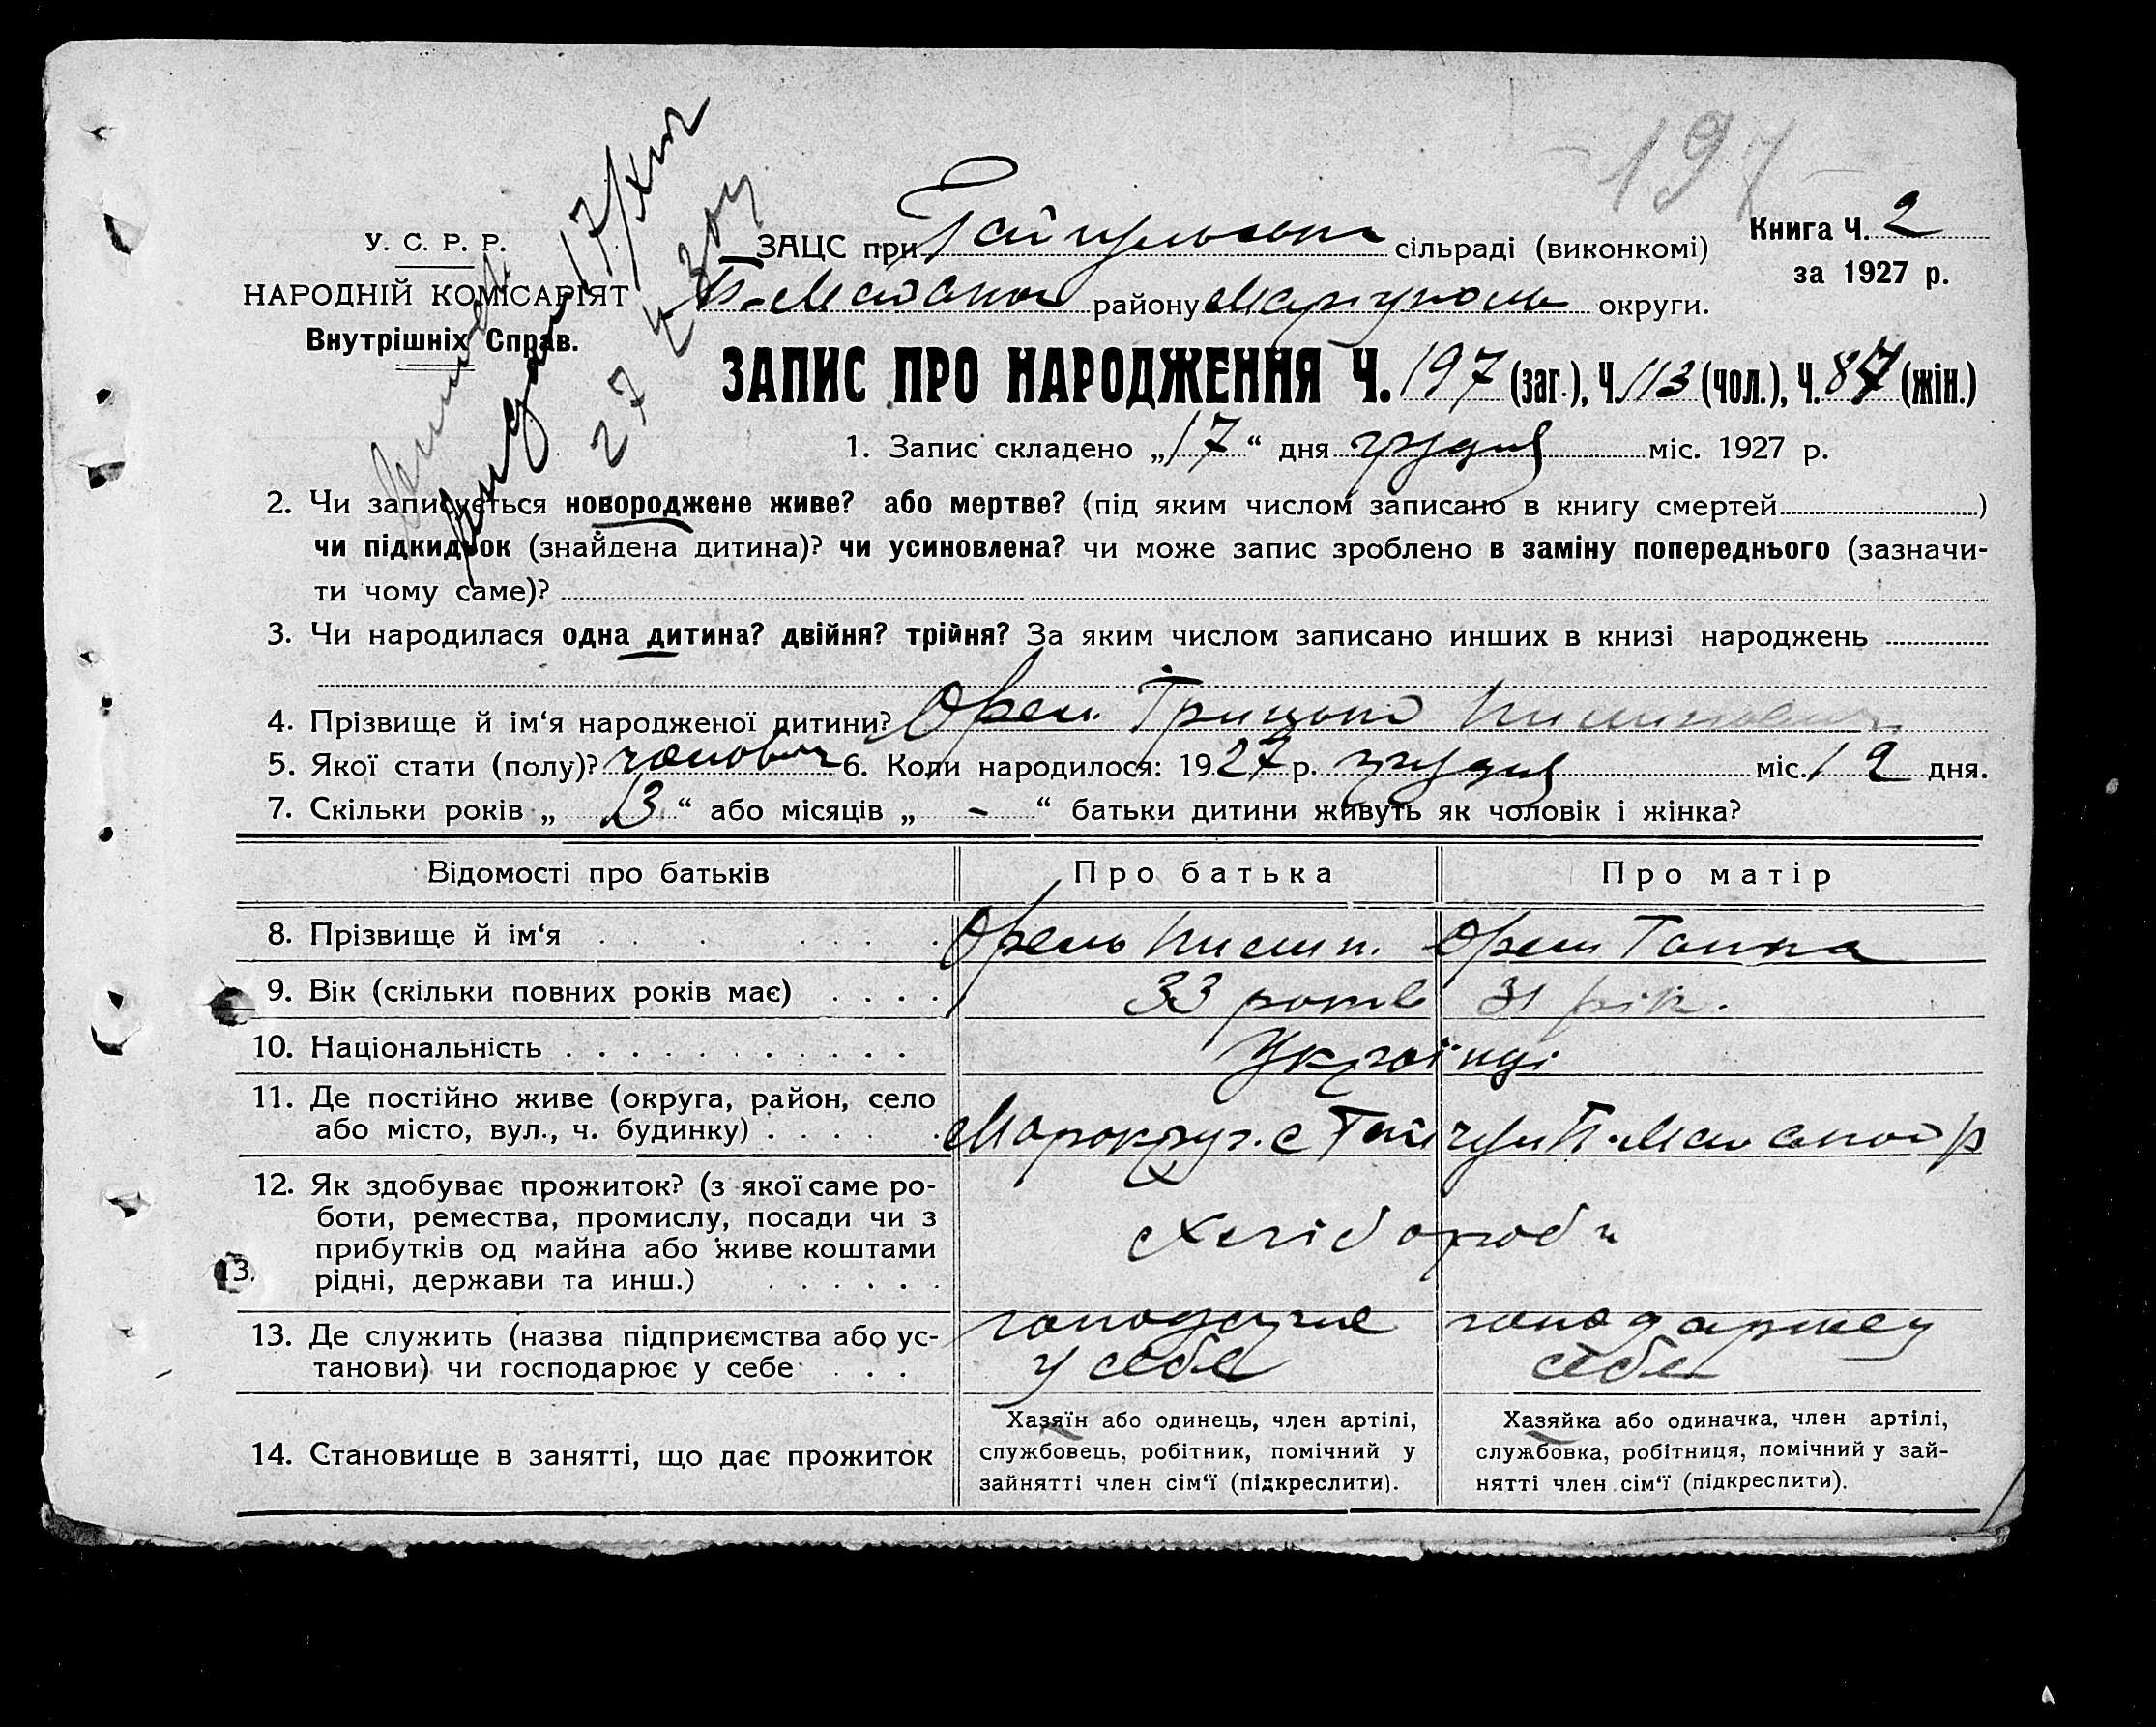 197
У. С. Р. Р.
НАРОДНІЙ КОМІСАРІЯТ
Внутрішніх Справ.
17/XII
27
ЗАЦС при Гайчульській сільраді (виконкомі)
Книга Ч. 2
за 1927 р.
району Маріуполь округи.
ЗАПИС ПРО НАРОДЖЕННЯ Ч. 197 (заг.), Ч. 113 (чол.), Ч. 87 (жін.)
1. Запис складено „17“ дня грудня міс. 1927 р.
2. Чи записується новороджене живе? або мертве? (під яким числом записано в книгу смертей )
чи підкидьок (знайдена дитина)? чи усиновлена? чи може запис зроблено в заміну попереднього (зазначи-
ти чому саме)?
3. Чи народилася одна дитина? двійня? трійня? За яким числом записано инших в книзі народжень
4. Прізвище й ім‘я народженої дитини? Орель Грицько
5. Якої стати (полу)? чоловіч 6. Коли народилося: 1927 р. грудня міс. 12 дня.
7. Скільки років „ 13 “ або місяців „ - “ батьки дитини живуть як чоловік і жінка?
Відомості про батьків Про батька Про матір
8. Прізвище й ім‘я Орель Орель Ганна
9. Вік (скільки повних років має) 33 років 31 рік.
10. Національність Українці
11. Де постійно живе (округа, район, село
або місто, вул., ч. будинку) Марокруг. с Гайчул
12. Як здобуває прожиток? (з якої саме ро-
боти, ремества, промислу, посади чи з
прибутків од майна або живе коштами
рідні, держави та инш.) Хлібороб
13.
13. Де служить (назва підприємства або ус-
танови) чи господарює у себе
у себе
себе
14. Становище в занятті, що дає прожиток
Хазяїн або одинець, член артілі,
службовець, робітник, помічний у
зайнятті член сім‘ї (підкреслити).
Хазяйка або одиначка, член артілі,
службовка, робітниця, помічний у зай-
нятті член сім‘ї (підкреслити).